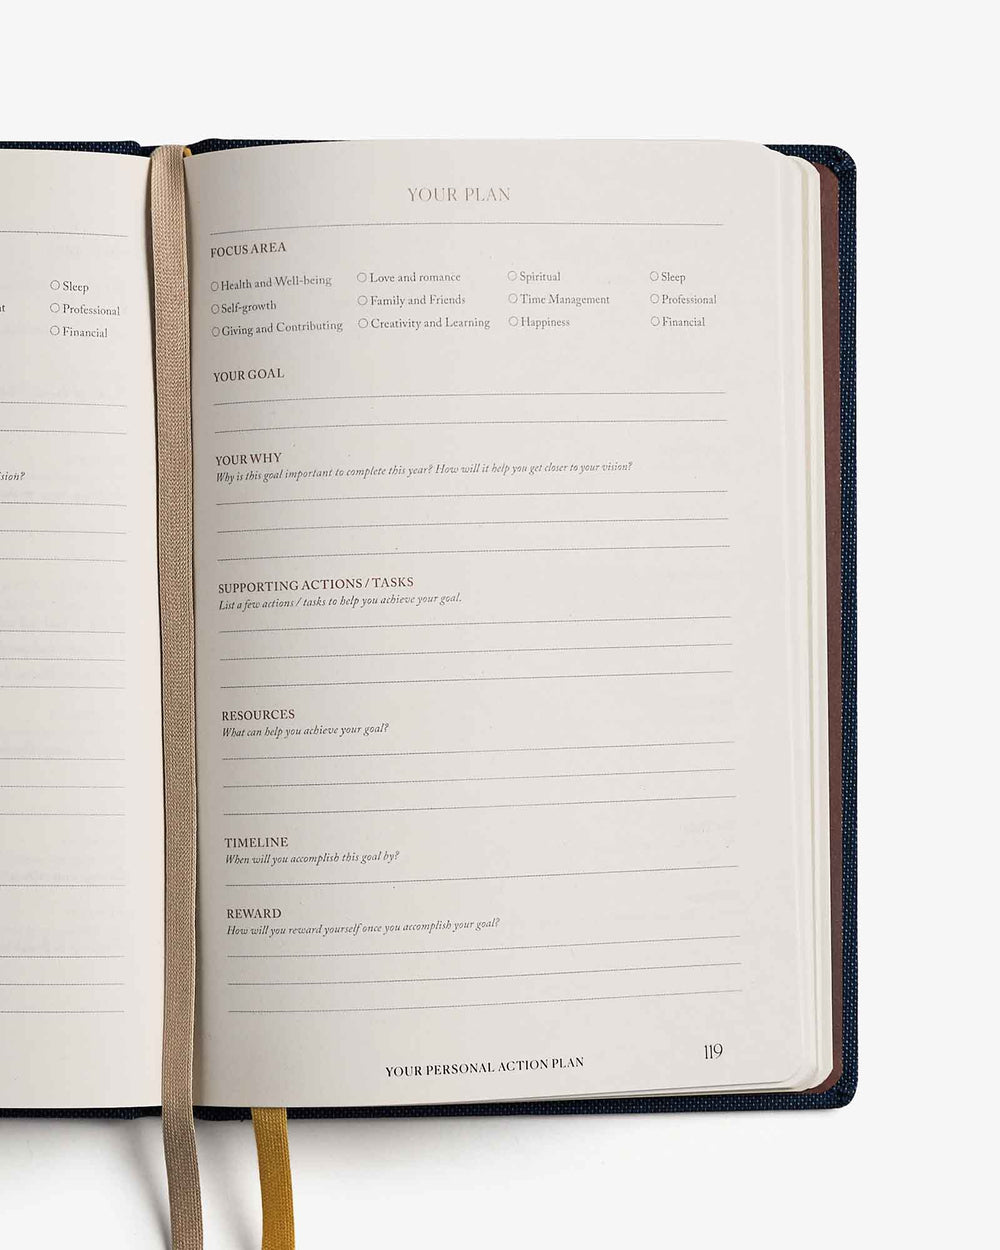 Sleep
t
Professional
Financial
sion?
YOUR PLAN
FOCUS AREA
Health and Well-being Love and romance Spiritual Sleep
Self-growth Family and Friends Time Management Professional
Giving and Contributing Creativity and Learning Happiness Financial
YOUR GOAL
YOUR WHY
Why is this goal important to complete this year? How will it help you get closer to your vision?
SUPPORTING ACTIONS / TASKS
List a few actions / tasks to help you achieve your goal.
RESOURCES
What can help you achieve your goal?
TIMELINE
When will you accomplish this goal by?
REWARD
How will you reward yourself once you accomplish your goal?
YOUR PERSONAL ACTION PLAN
119